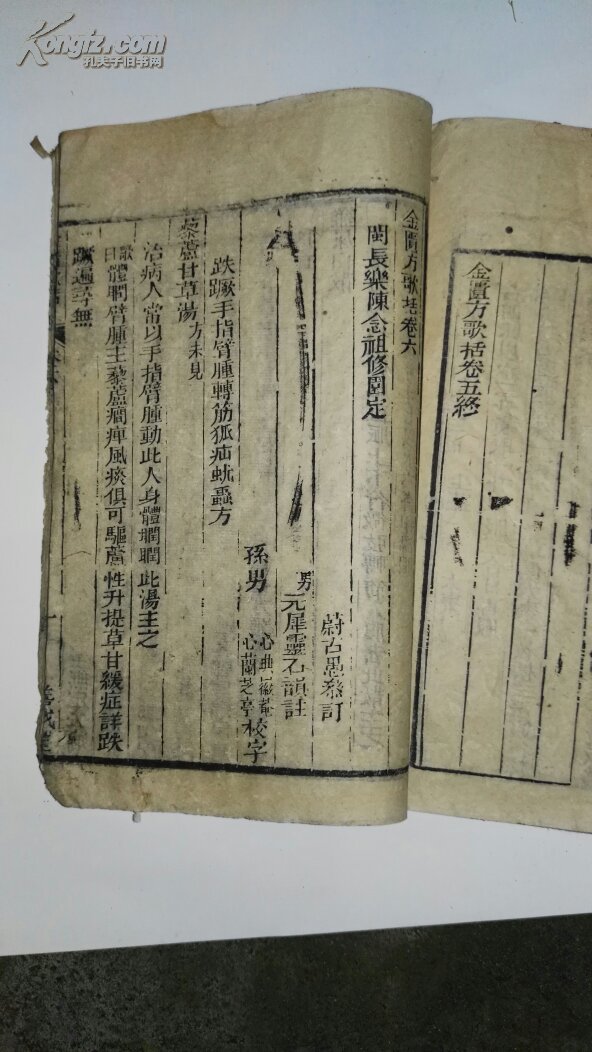 Kongfz.com
孔夫子旧书网
金匱方歌括卷五終
金匱方歌括卷六
閩長樂陳念祖修園定
蔚古愚叅訂
男
元犀靈石韻註
孫男
心典徽菴
心蘭芝亭
校字
趺蹶手指臂腫轉筋狐疝蚘蟲方
藜蘆甘草湯 方未見
治病人當以手指臂腫動此人身體瞤瞤此湯主之
歌曰 體瞤臂腫主藜蘆癎痺風痰俱可驅蘆性升提草甘緩症詳趺
蹶遍尋無